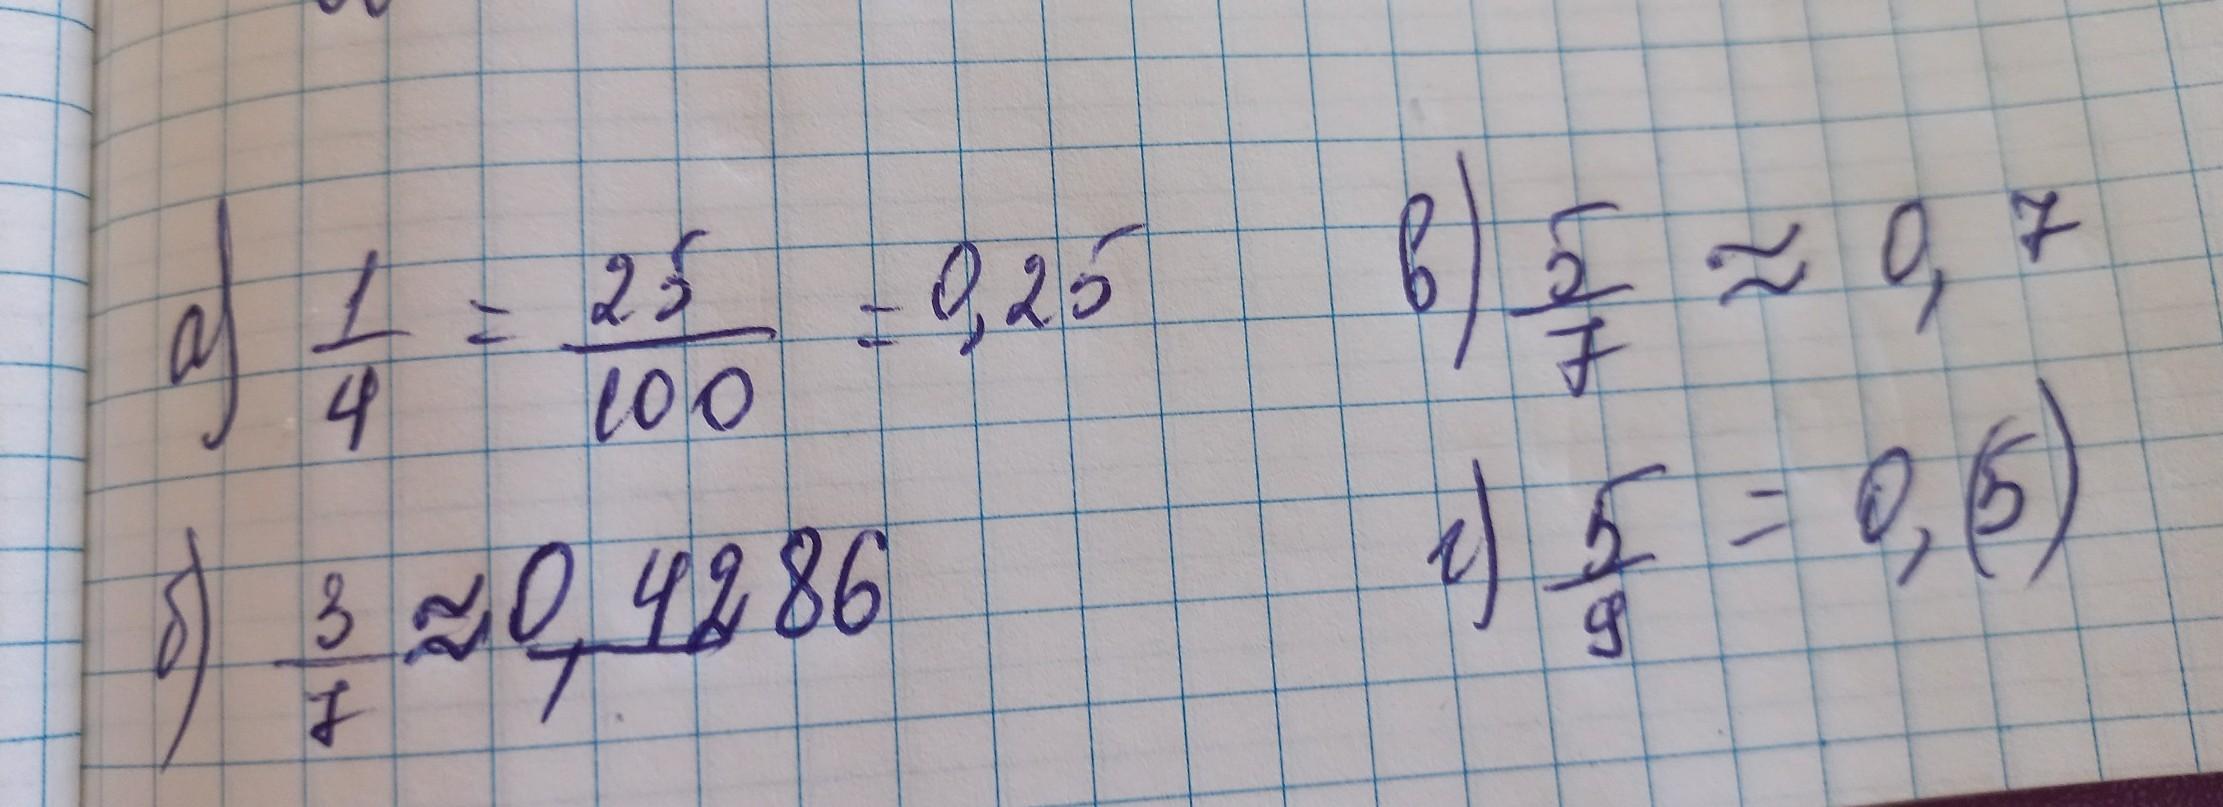 а) 1/4 = 25/100 = 0,25
б) 3/7 ≈ 0,4286
в) 5/7 ≈ 0,7
г) 5/9 = 0,(5)